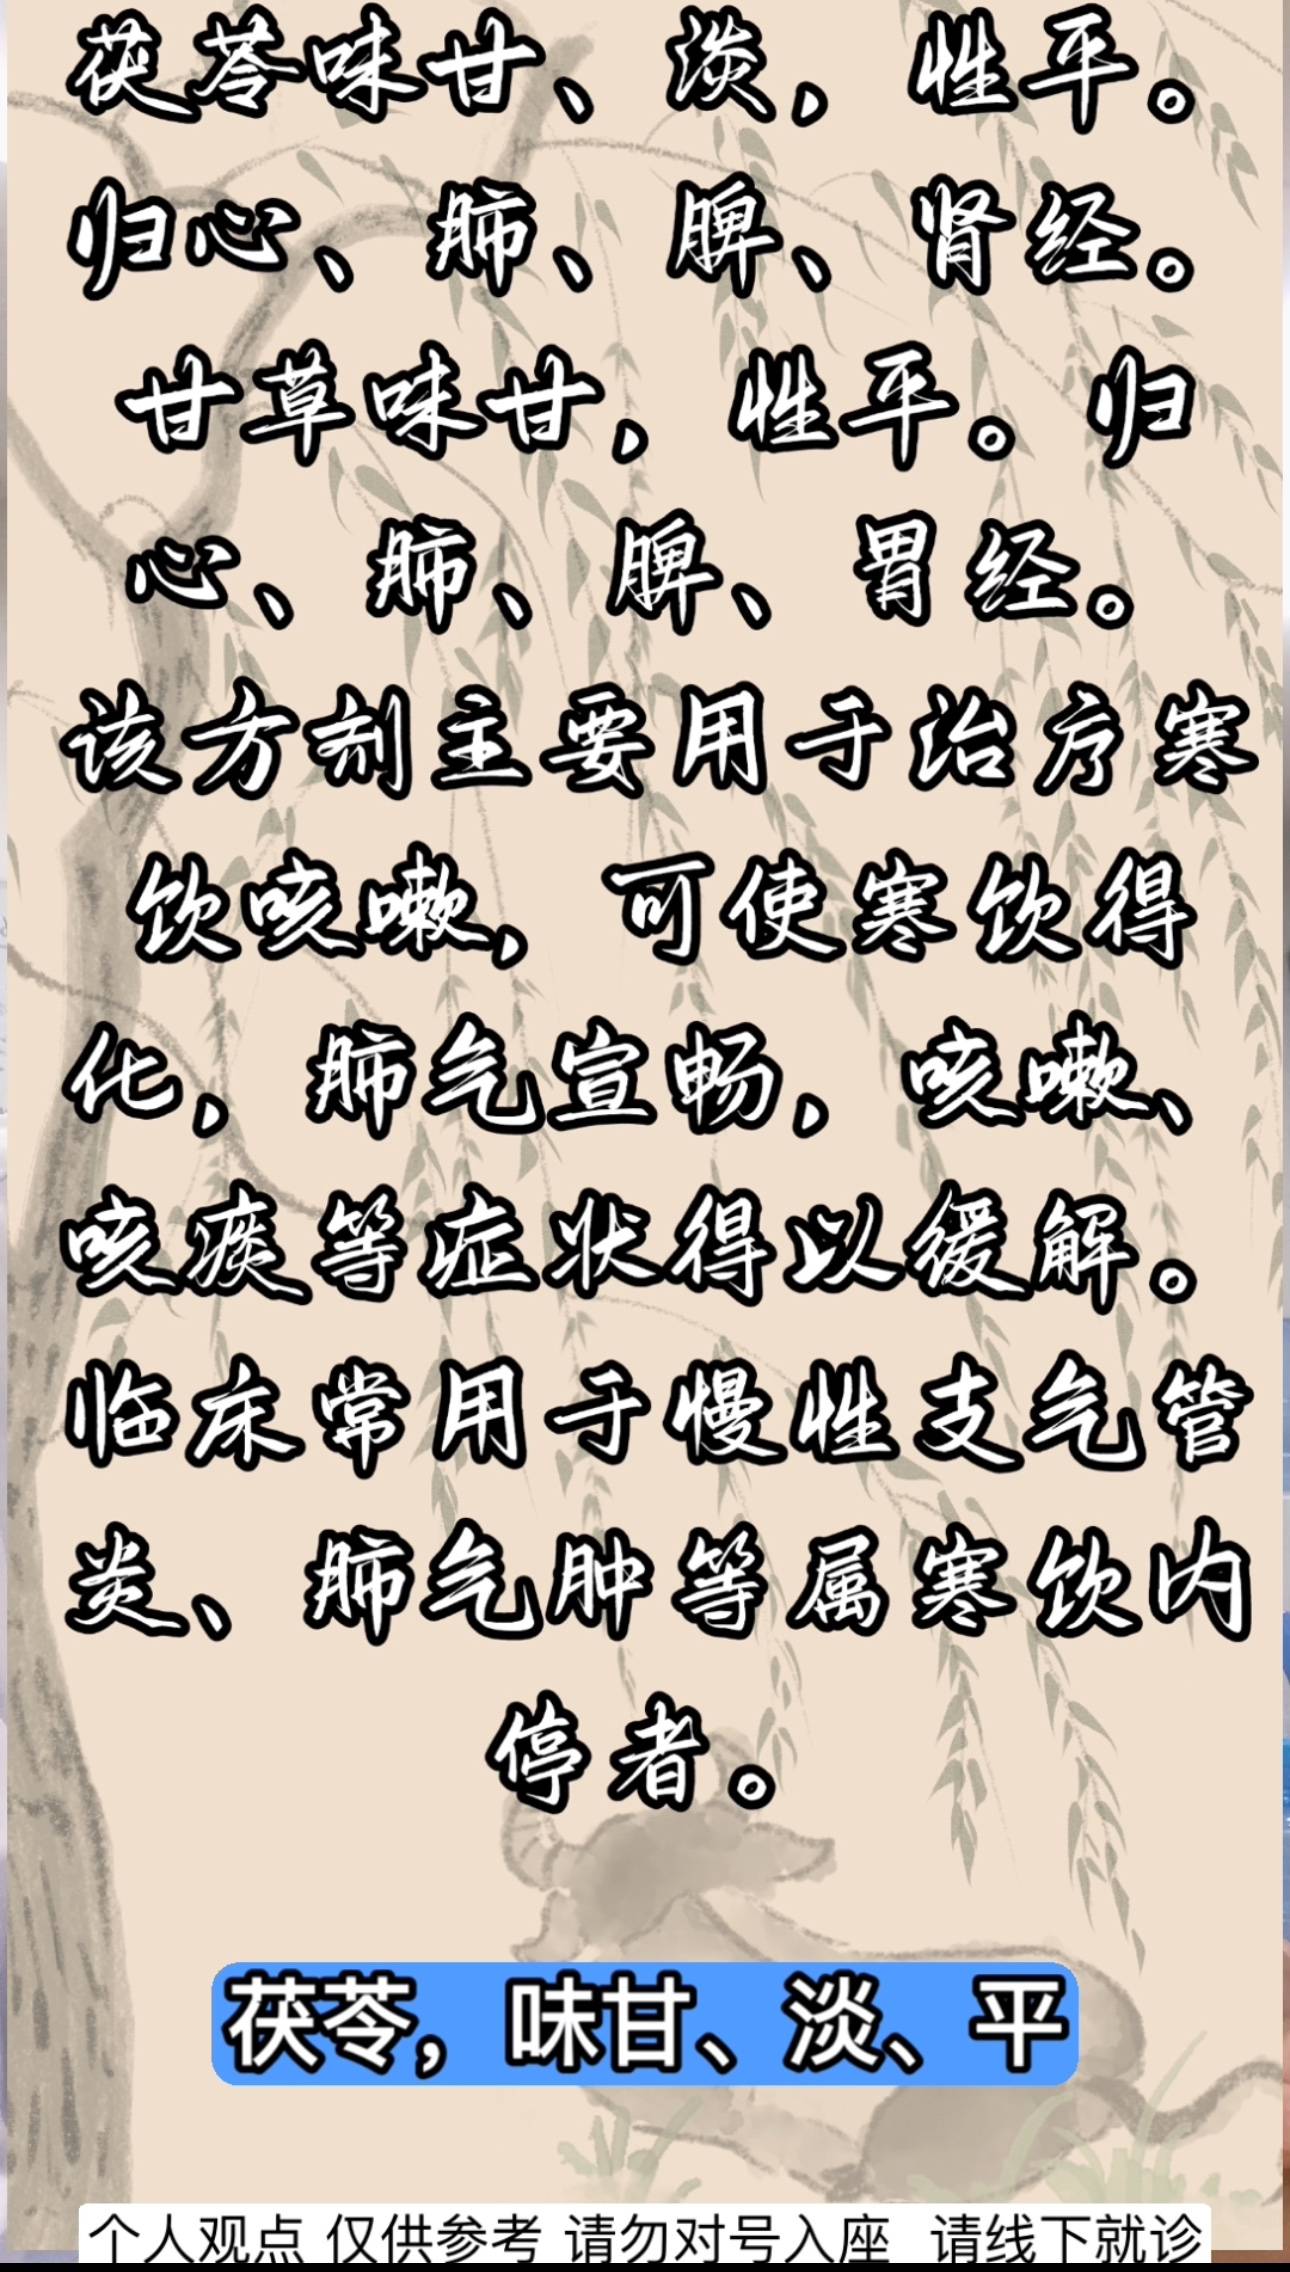 茯苓味甘、淡，性平。
归心、肺、脾、肾经。
甘草味甘，性平。归
心、肺、脾、胃经。
该方剂主要用于治疗寒
饮咳嗽，可使寒饮得
化，肺气宣畅，咳嗽、
咳痰等症状得以缓解。
临床常用于慢性支气管
炎、肺气肿等属寒饮内
停者。
茯苓，味甘、淡、平
个人观点 仅供参考 请勿对号入座 请线下就诊